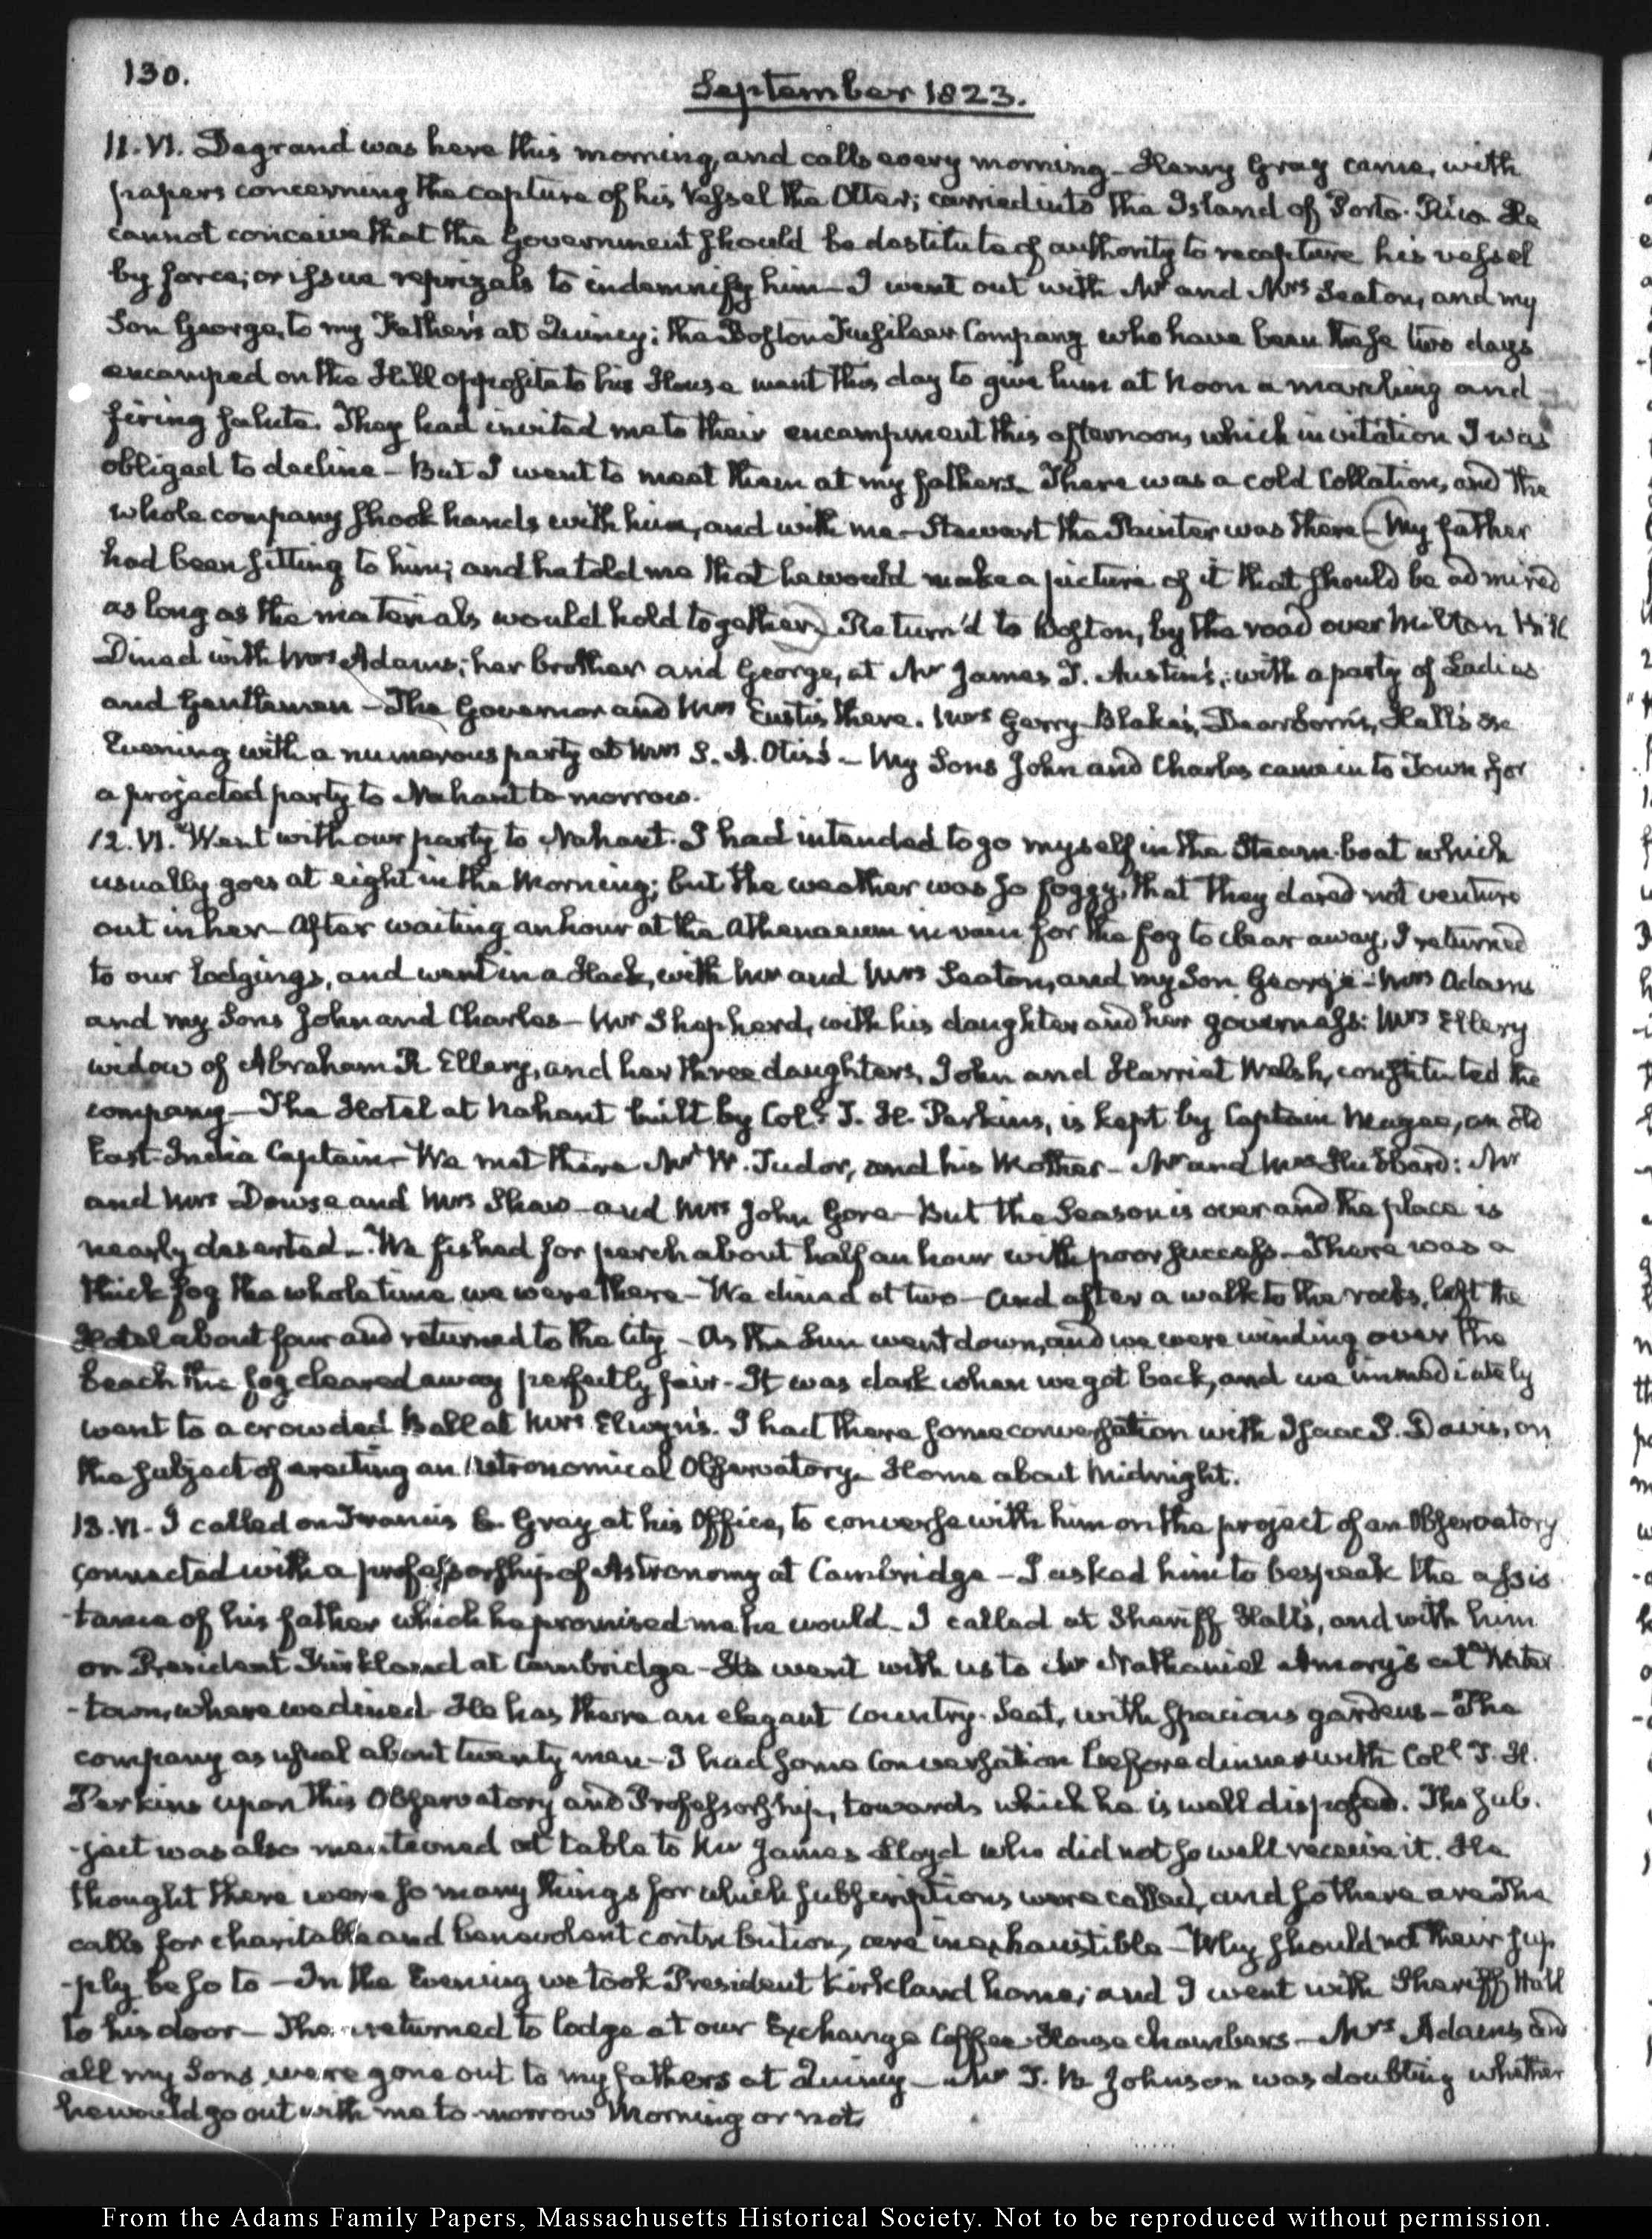 130.
September 1823.
11. VI. Degrand was here this morning, and calls every morning - Henry Gray came, with
papers concerning the capture of his Vessel the Otter; carried into the Island of Porto-Rico He
cannot conceive that the Government should be destitute of authority to recapture his vessel
by force; or issue reprizals to indemnify him - I went out with Mr and Mrs Seaton, and my
Son George, to my Father's at Quincy; the Boston Fusileer Company who have been these two days
encamped on the Hill opposite to his House went this day to give him at Noon a marching and
firing salute. They had invited me to their encampment this afternoon, which invitation I was
obliged to decline - But I went to meet them at my fathers. There was a cold Collation, and the
whole company shook hands with him, and with me - Stewart the Painter was there - (My father
had been sitting to him; and he told me that he would make a picture of it that should be admired
as long as the materials would hold together.) Return'd to Boston, by the road over Milton Hill
Dined with Mrs Adams; her brother and George, at Mr James T. Austin's; with a party of Ladies
and Gentlemen - The Governor and Mrs Eustis there. Mrs Gerry - Blake's, Dearborn's, Hall's &c
Evening with a numerous party at Mrs S. A. Otis's - My Sons John and Charles came in to Town, for
a projected party to Nahant to-morrow.
12. VI. Went with our party to Nahant. I had intended to go myself in the Steam-boat which
usually goes at eight in the Morning; but the weather was so foggy, that they dared not venture
out in her - After waiting an hour at the Athenaeum in vain for the fog to clear away, I returned
to our lodgings, and went in a Hack, with Mr and Mrs Seaton, and my Son George - Mrs Adams
and my Sons John and Charles - Mr Shepherd, with his daughter and her governess: Mrs Ellery
widow of Abraham R Ellery, and her three daughters, John and Harriet Welsh, constituted the
company - The Hotel at Nahant built by Coll. T. H. Perkins, is kept by Captain Magee, an old
East-India Captain - We met there Mr W. Tudor, and his Mother - Mr and Mrs Hubbard: Mr
and Mrs Dowse and Mrs Shaw - and Mrs John Gore - But the Season is over and the place is
nearly deserted - We fished for perch about half an hour with poor success - There was a
thick fog the whole time we were there - We dined at two - and after a walk to the rocks, left the
Hotel about four and returned to the City - As the Sun went down, and we were winding over the
beach the fog cleared away perfectly fair - It was dark when we got back, and we immediately
went to a crowded Ball at Mrs Elwyn's. I had there some conversation with Isaac P. Davis, on
the subject of erecting an Astronomical Observatory. Home about Midnight.
13. VI - I called on Francis C. Gray at his Office, to converse with him on the project of an Observatory
connected with a professorship of Astronomy at Cambridge - I asked him to bespeak the assis
-tance of his father which he promised me he would - I called at Sheriff Hall's, and with him
on President Kirkland at Cambridge - He went with us to Mr Nathaniel Amory's at Water
-town, where we dined - He has there an elegant Country-Seat, with spacious gardens - The
company as usual about twenty men - I had some Conversation before dinner with Coll T. H.
Perkins upon this Observatory and Professorship, towards which he is well disposed. The sub.
-ject was also mentioned at table to Mr James Lloyd who did not so well receive it. He
thought there were so many things for which subscriptions were called, and so there are. The
calls for charitable and benevolent contribution, are inexhaustible - Why should not their sup
-ply be so to - In the Evening we took President Kirkland home; and I went with Sheriff Hall
to his door - Then returned to lodge at our Exchange Coffee-House chambers - Mrs Adams and
all my Sons, were gone out to my fathers at Quincy - Mr T. B. Johnson was doubting whether
he would go out with me to-morrow Morning or not
From the Adams Family Papers, Massachusetts Historical Society. Not to be reproduced without permission.